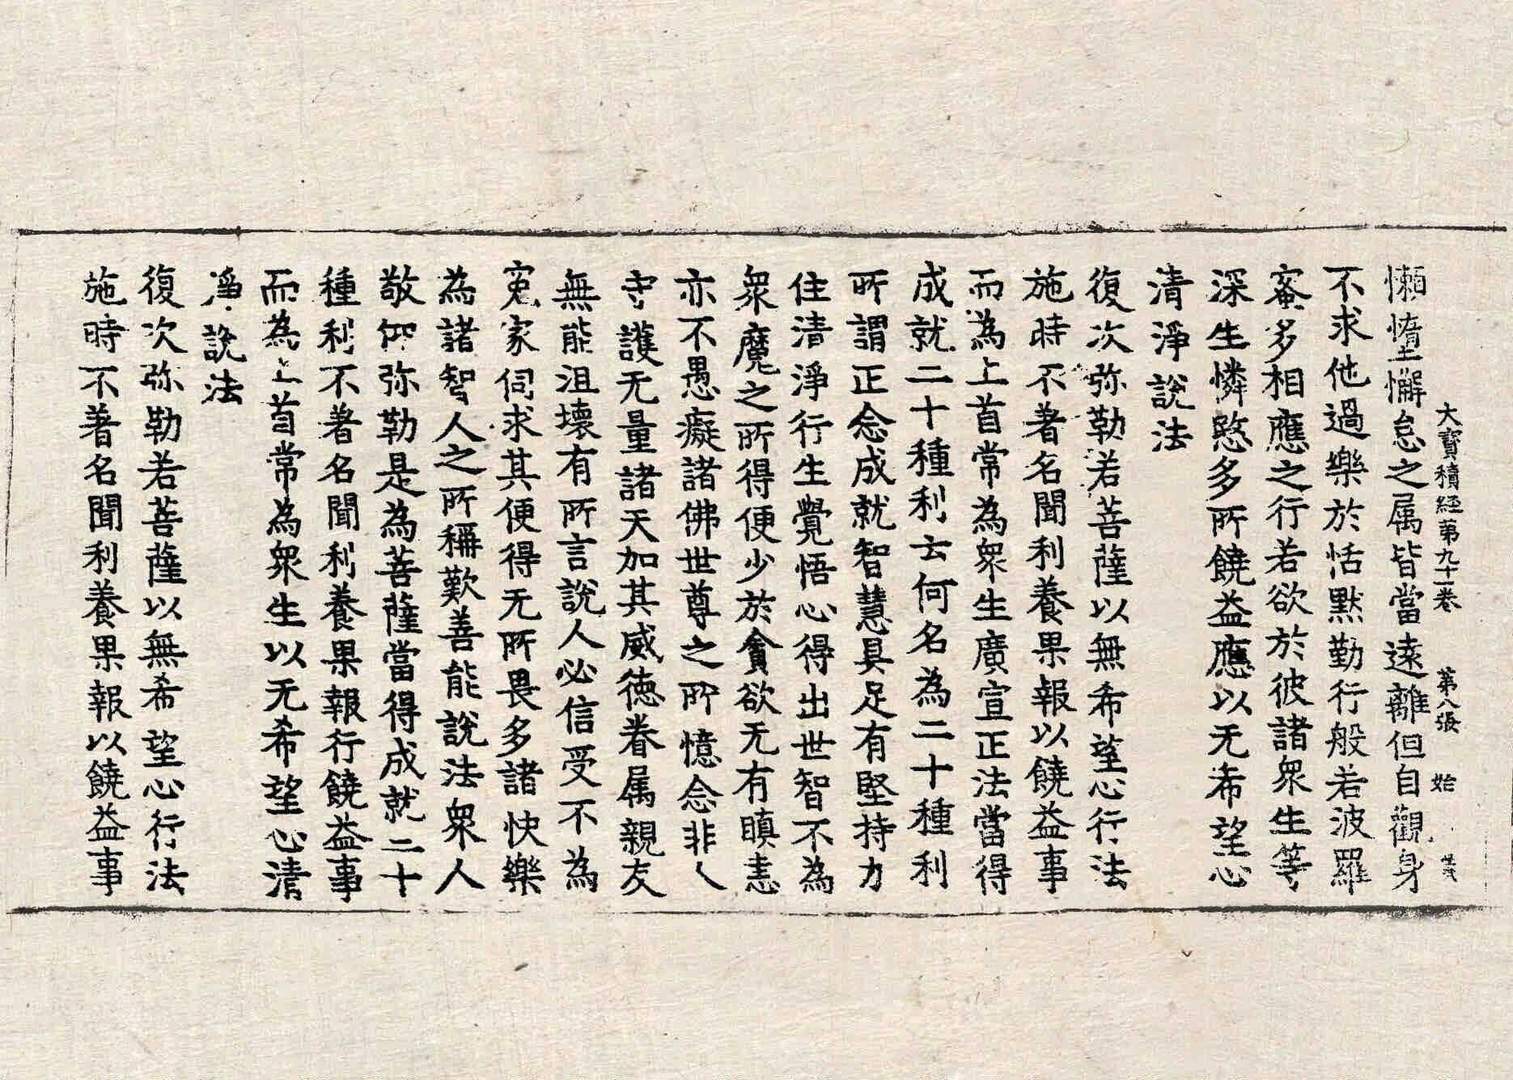 大寶積經第九十一卷 第八張 始
懶惰懈怠之属皆當遠離但自觀身
不求他過樂於恬默勤行般若波羅
蜜多相應之行若欲於彼諸衆生等
深生憐愍多所饒益應以无希望心
清淨說法
復次弥勒若菩薩以無希望心行法
施時不著名聞利養果報以饒益事
而為上首常為衆生廣宣正法當得
成就二十種利云何名為二十種利
所謂正念成就智慧具足有堅持力
住清淨行生覺悟心得出世智不為
衆魔之所得便少於貪欲无有瞋恚
亦不愚癡諸佛世尊之所憶念非人
守護无量諸天加其威德眷属親友
無能沮壞有所言說人必信受不為
冤家伺求其便得无所畏多諸快樂
為諸智人之所稱歎善能說法衆人
敬仰弥勒是為菩薩當得成就二十
種利不著名聞利養果報行饒益事
而為上首常為衆生以无希望心清
淨說法
復次弥勒若菩薩以無希望心行法
施時不著名聞利養果報以饒益事